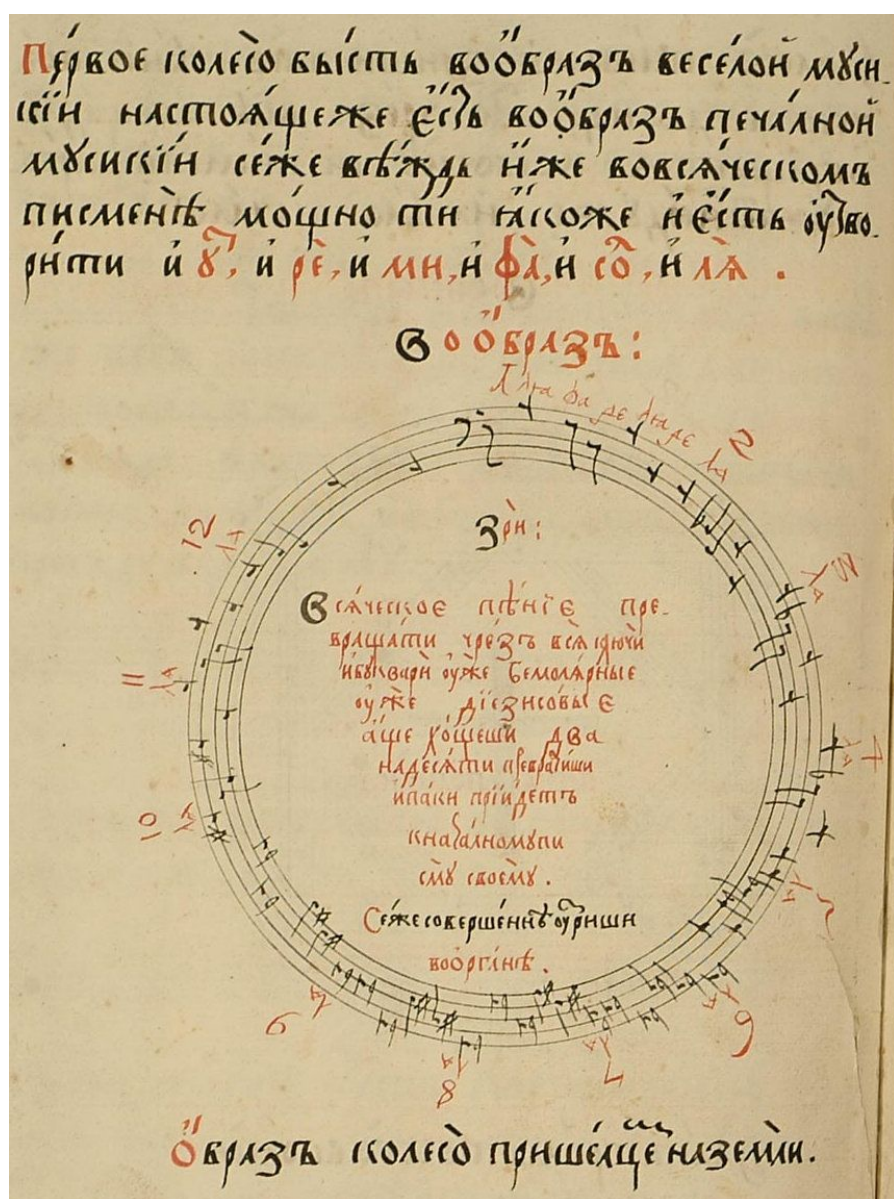 Пе́рвое колесо̀ бы́сть воѻ́бразъ весе́лой мꙋси-
кі́и настоѧ́щеже є҆́сть воѻ́бразъ печа́лной
мꙋсикі́и се́же всѣ́ждь и҆́же вовсѧ́ческомъ
писменѣ̀ мо́щно ти ꙗ҆́коже и҆є́сть оу҆тво-
ри́ти и҆ у҆т, и҆ рѐ, и҆ ми, и҆ фа̀, и҆ со̀л, и҆ лѧ̀.
Воѻ́бразъ:
2
3
4
5
6
7
8
9
10
11
12
Зрѝ:
Всѧ́ческое пѣ́нїе пре-
враща́ти чре́зъ всѧ̀ ключѝ
и҆букварѝ оу҆́же бемолѧ́рные
оу҆́же дїезисовы́е
а҆́ще хо́щеши два
на́десѧти преврати́ши
и҆па́ки прїи́детъ
кнача́лномупи
смꙋ̀ своемꙋ̀.
Се́жесоверше́ннѣ оу҆́зриши
воѻрга́нѣ.
Ѻ҆́бразъ колесо̀ прише́дщее наземлѝ.